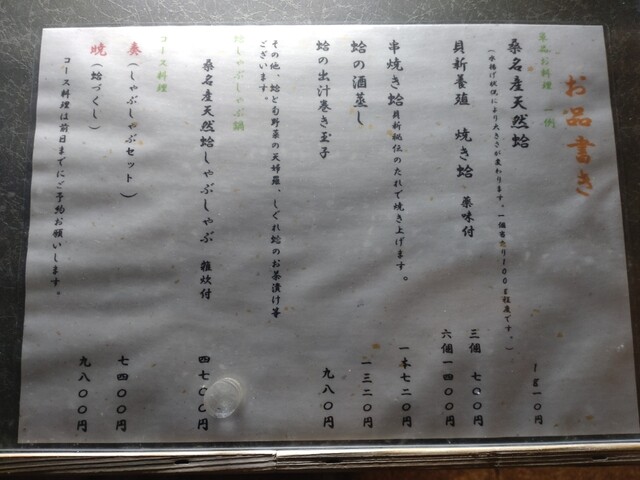 お品書き
単品お料理 一例
桑名産天然蛤 1g10円
（水揚げ状況により大きさが変わります。一個当たり100g程度です。）
貝新養殖 焼き蛤 薬味付 三個 七〇〇円
六個一四〇〇円
串焼き蛤 貝新秘伝のたれで焼き上げます。 一本七二〇円
蛤の酒蒸し 一三二〇円
蛤の出汁巻き玉子 九八〇円
その他、蛤と旬野菜の天婦羅、しぐれ蛤のお茶漬け等
ございます。
蛤しゃぶしゃぶ鍋
桑名産天然蛤しゃぶしゃぶ 雑炊付 四七〇〇円
コース料理
奏（しゃぶしゃぶセット） 七四〇〇円
暁（蛤づくし） 九八〇〇円
コース料理は前日までにご予約お願いします。